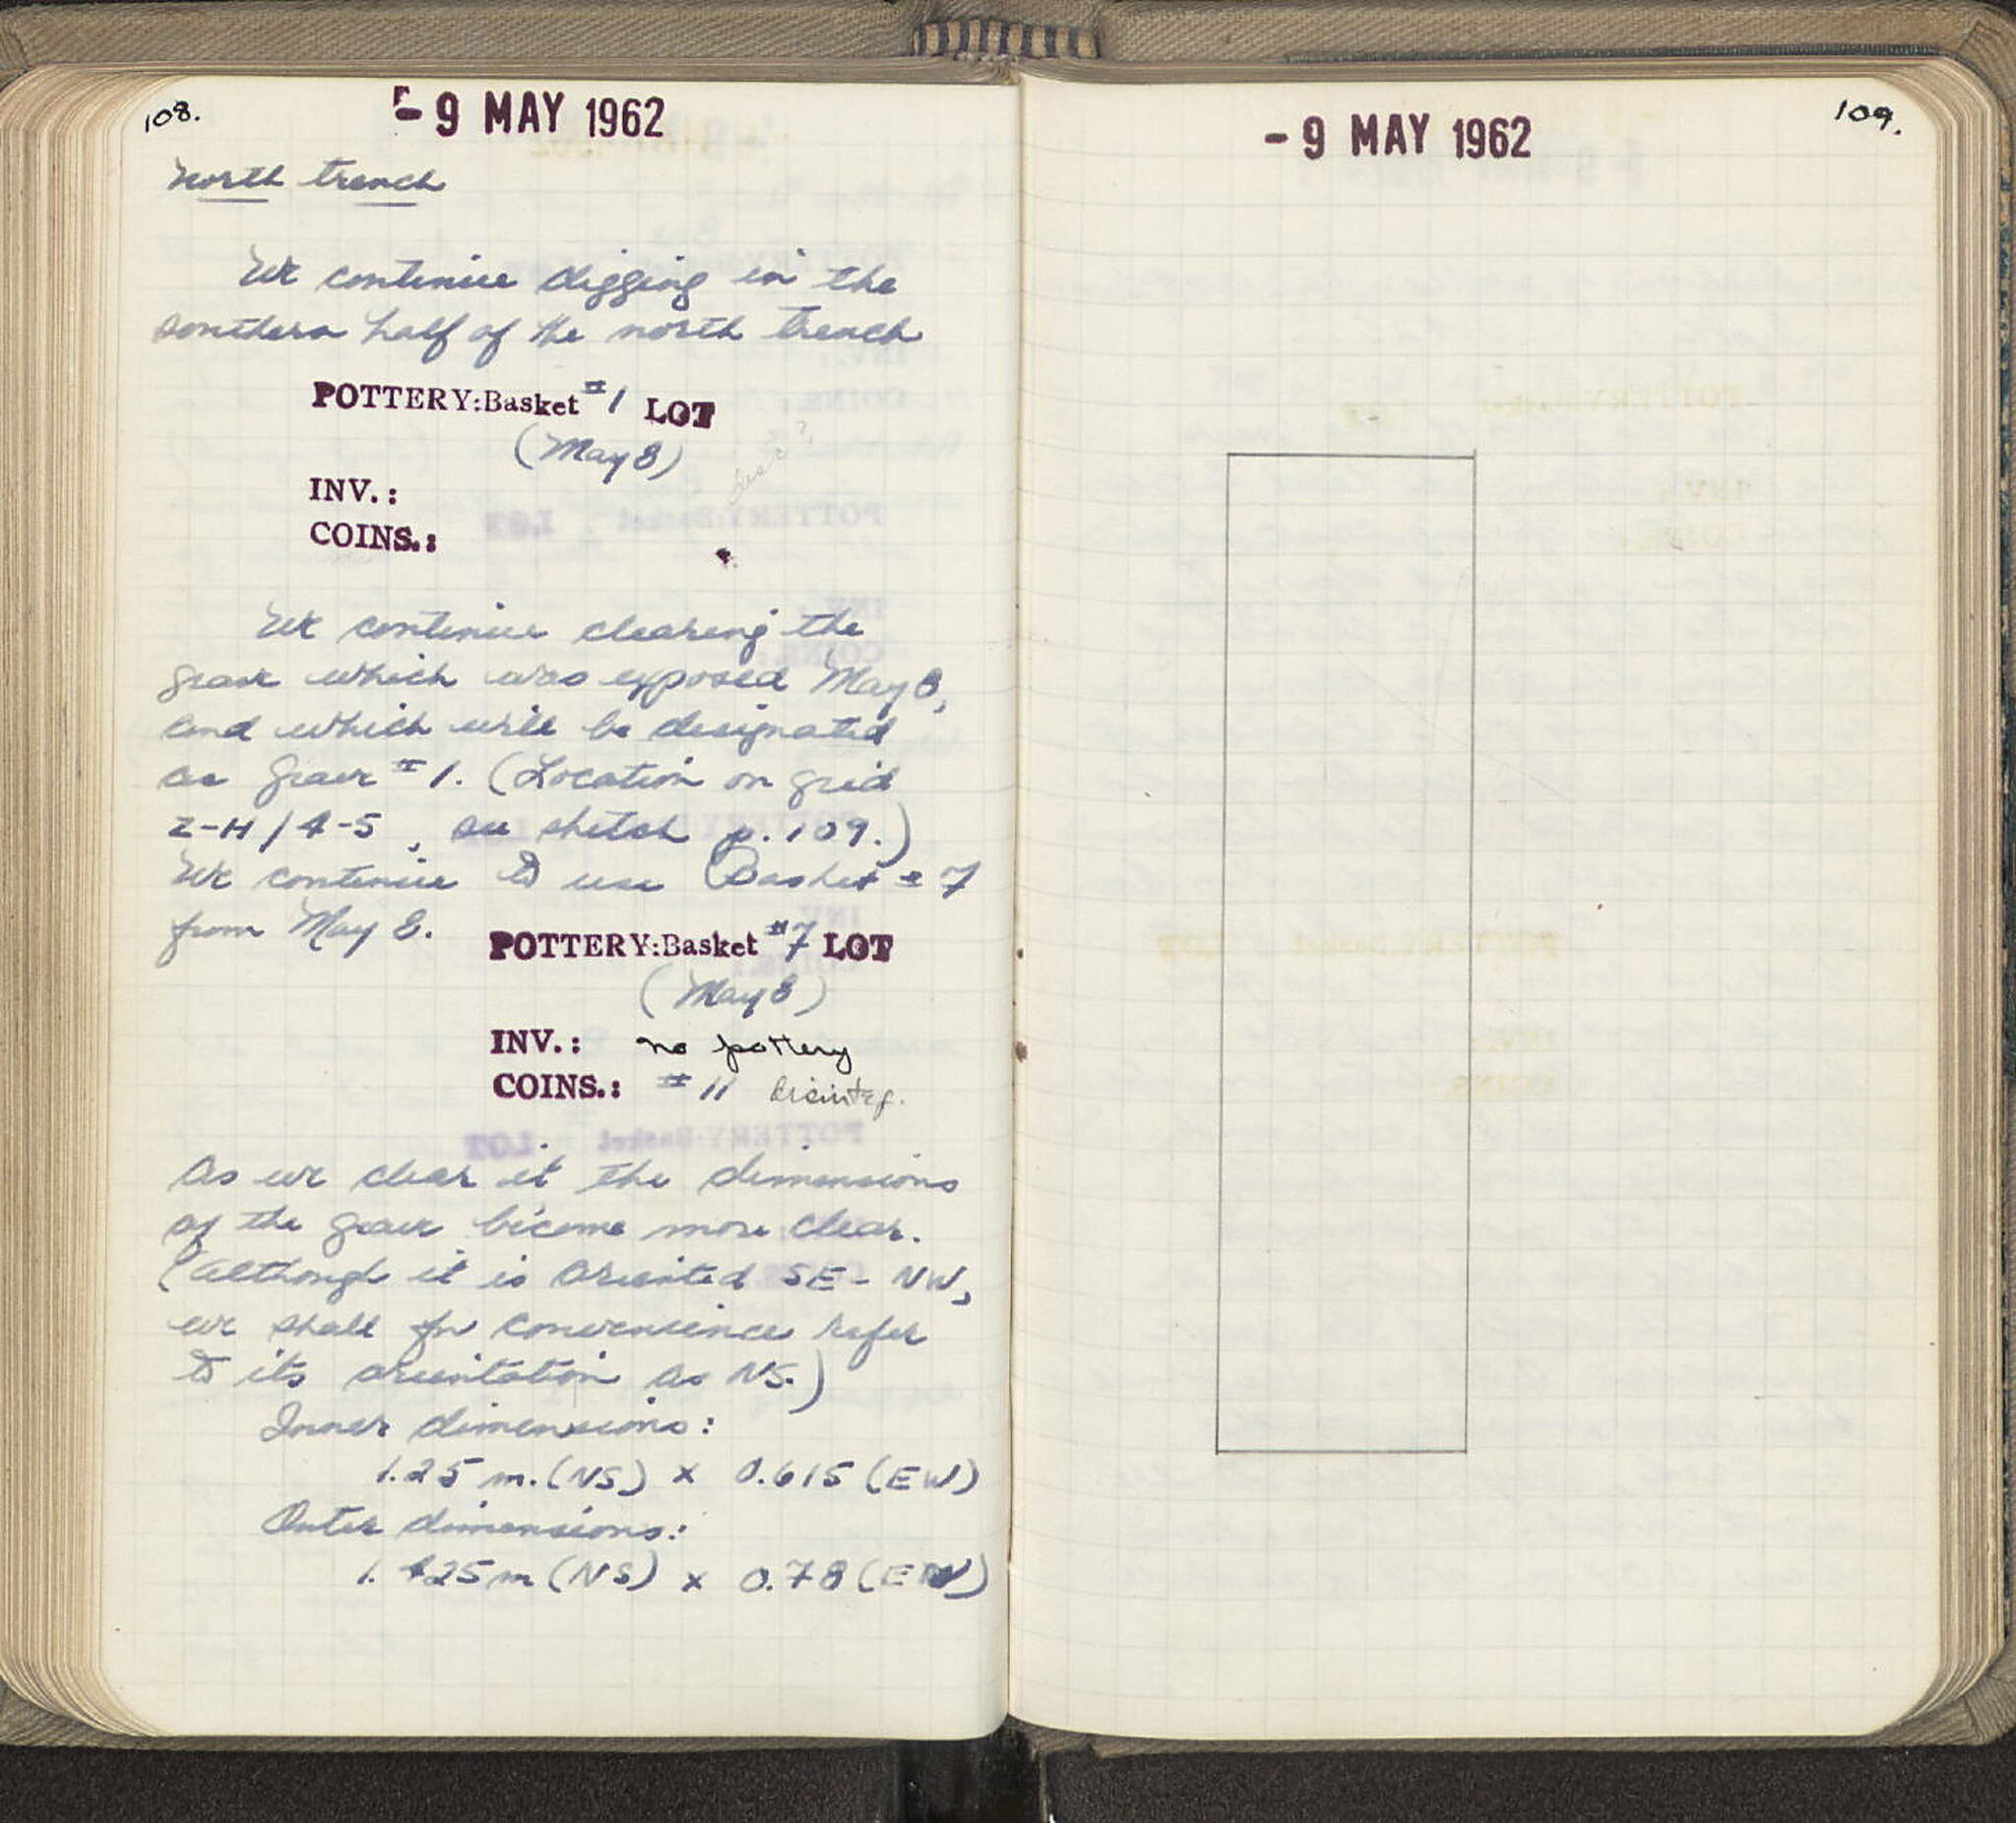 108.
- 9 MAY 1962
North trench
We continue digging in the
southern half of the north trench
POTTERY:Basket #1 LOT
(May 8)
INV.:
COINS.:
We continue clearing the
grave which was exposed May 8,
and which will be designated
as grave #1. (Location on grid
Z-H/4-5, see sketch p. 109.)
We continue to use Basket #7
from May 8.
POTTERY:Basket #7 LOT
(May 8)
INV.: no pottery
COINS.: #11 disinteg.
As we clear it the dimensions
of the grave become more clear.
(although it is oriented SE-NW,
we shall for convenience refer
to its orientation as NS.)
Inner dimensions:
1.25 m. (NS) x 0.615 (EW)
Outer dimensions:
1.425 m (NS) x 0.78 (EW)
109.
- 9 MAY 1962